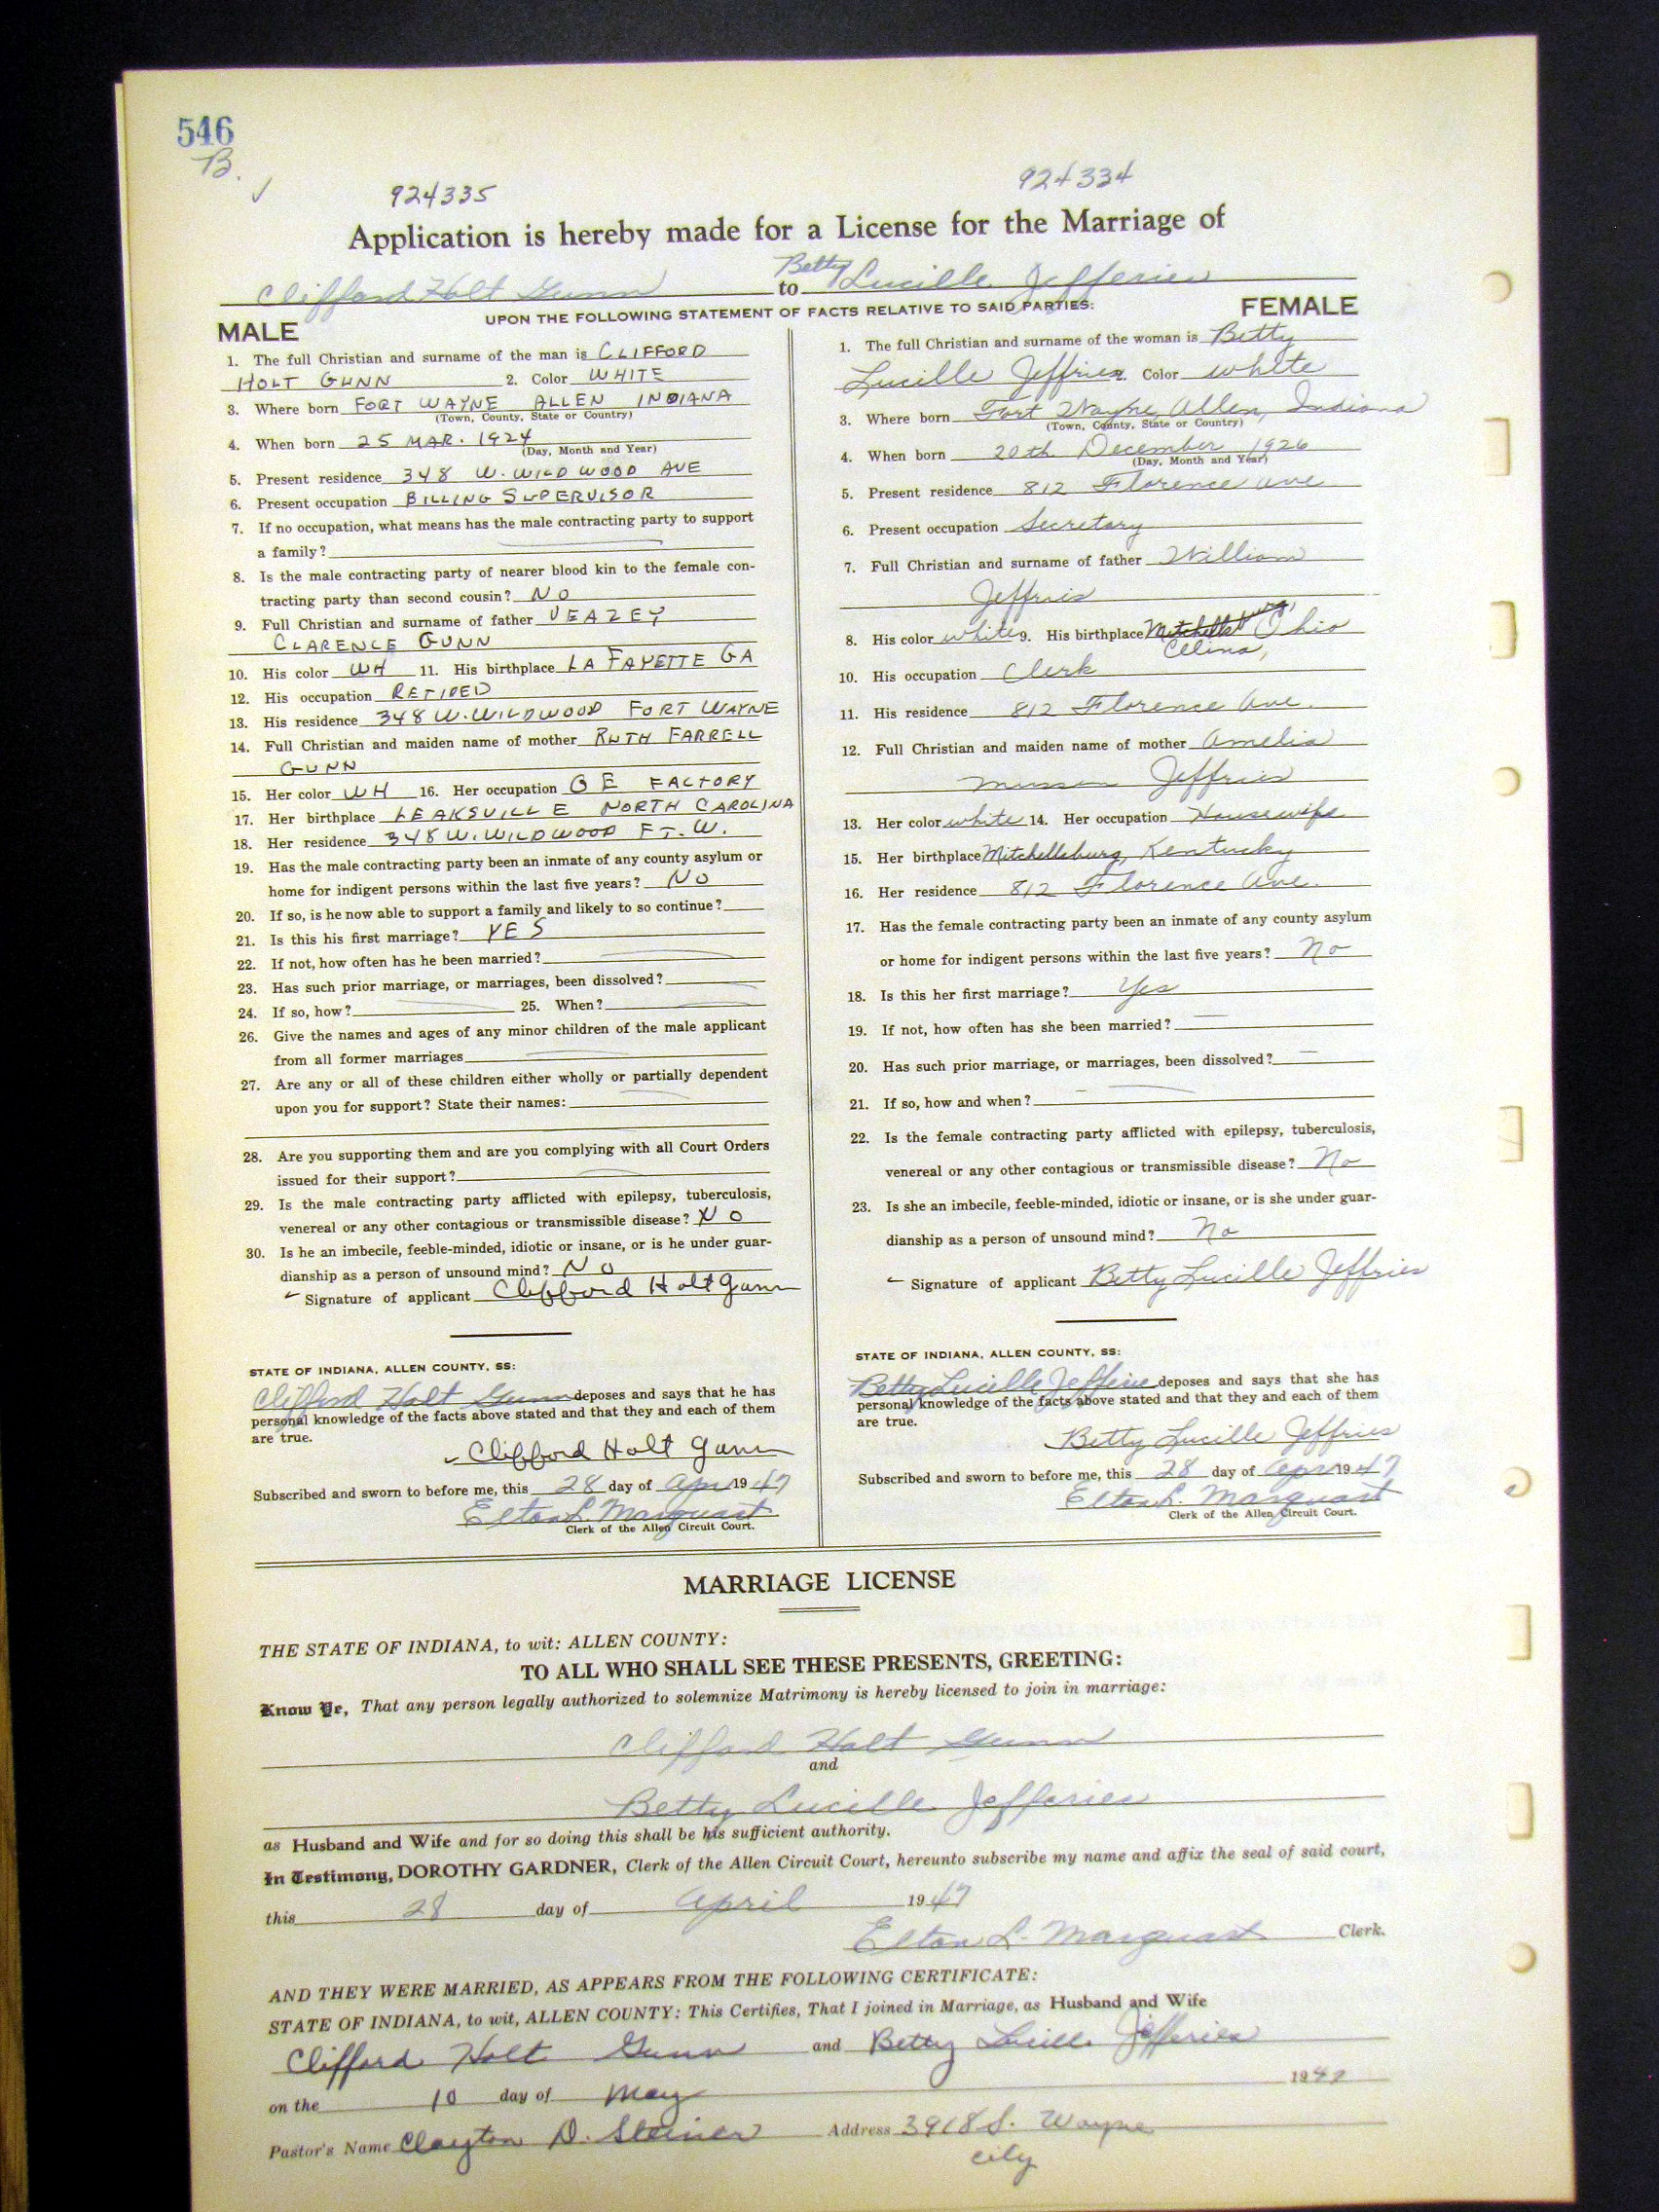 546
B.
✓
924335 924334
Application is hereby made for a License for the Marriage of
Clifford Holt Gunn to Betty Lucille Jefferies
UPON THE FOLLOWING STATEMENT OF FACTS RELATIVE TO SAID PARTIES:
MALE
1. The full Christian and surname of the man is CLIFFORD
HOLT GUNN 2. Color WHITE
3. Where born FORT WAYNE ALLEN INDIANA
(Town, County, State or Country)
4. When born 25 MAR. 1924
(Day, Month and Year)
5. Present residence 348 W. WILDWOOD AVE
6. Present occupation BILLING SUPERVISOR
7. If no occupation, what means has the male contracting party to support
a family?
8. Is the male contracting party of nearer blood kin to the female con-
tracting party than second cousin? NO
9. Full Christian and surname of father VEAZEY
CLARENCE GUNN
10. His color WH 11. His birthplace LA FAYETTE GA
12. His occupation RETIRED
13. His residence 348 W. WILDWOOD FORT WAYNE
14. Full Christian and maiden name of mother RUTH FARRELL
GUNN
15. Her color WH 16. Her occupation G E FACTORY
17. Her birthplace LEAKSVILLE NORTH CAROLINA
18. Her residence 348 W. WILDWOOD FT. W.
19. Has the male contracting party been an inmate of any county asylum or
home for indigent persons within the last five years? NO
20. If so, is he now able to support a family and likely to so continue?
21. Is this his first marriage? YES
22. If not, how often has he been married?
23. Has such prior marriage, or marriages, been dissolved?
24. If so, how? 25. When?
26. Give the names and ages of any minor children of the male applicant
from all former marriages
27. Are any or all of these children either wholly or partially dependent
upon you for support? State their names:
28. Are you supporting them and are you complying with all Court Orders
issued for their support?
29. Is the male contracting party afflicted with epilepsy, tuberculosis,
venereal or any other contagious or transmissible disease? NO
30. Is he an imbecile, feeble-minded, idiotic or insane, or is he under guar-
dianship as a person of unsound mind? NO
Signature of applicant Clifford Holt Gunn
STATE OF INDIANA, ALLEN COUNTY, SS:
Clifford Holt Gunn deposes and says that he has
personal knowledge of the facts above stated and that they and each of them
are true.
Clifford Holt Gunn
Subscribed and sworn to before me, this 28 day of Apr 1947
Elton L. Marquart
Clerk of the Allen Circuit Court.
FEMALE
1. The full Christian and surname of the woman is Betty
Lucille Jeffries 2. Color white
3. Where born Fort Wayne, Allen, Indiana
(Town, County, State or Country)
4. When born 20th December 1926
(Day, Month and Year)
5. Present residence 812 Florence Ave.
6. Present occupation Secretary
7. Full Christian and surname of father William
Jeffries
8. His color white 9. His birthplace Mitchellsburg, Ohio
Celina,
10. His occupation Clerk
11. His residence 812 Florence Ave.
12. Full Christian and maiden name of mother Amelia
Jeffries
13. Her color white 14. Her occupation Housewife
15. Her birthplace Mitchellsburg, Kentucky
16. Her residence 812 Florence Ave.
17. Has the female contracting party been an inmate of any county asylum
or home for indigent persons within the last five years? No
18. Is this her first marriage? Yes
19. If not, how often has she been married?
20. Has such prior marriage, or marriages, been dissolved?
21. If so, how and when?
22. Is the female contracting party afflicted with epilepsy, tuberculosis,
venereal or any other contagious or transmissible disease? No
23. Is she an imbecile, feeble-minded, idiotic or insane, or is she under guar-
dianship as a person of unsound mind? No
Signature of applicant Betty Lucille Jeffries
STATE OF INDIANA, ALLEN COUNTY, SS:
Betty Lucille Jefferies deposes and says that she has
personal knowledge of the facts above stated and that they and each of them
are true.
Betty Lucille Jeffries
Subscribed and sworn to before me, this 28 day of Apr 1947
Elton L. Marquart
Clerk of the Allen Circuit Court.
MARRIAGE LICENSE
THE STATE OF INDIANA, to wit: ALLEN COUNTY:
TO ALL WHO SHALL SEE THESE PRESENTS, GREETING:
Know Ye, That any person legally authorized to solemnize Matrimony is hereby licensed to join in marriage:
Clifford Holt Gunn
and
Betty Lucille Jefferies
as Husband and Wife and for so doing this shall be his sufficient authority.
In Testimony, DOROTHY GARDNER, Clerk of the Allen Circuit Court, hereunto subscribe my name and affix the seal of said court,
this 28 day of April 1947
Elton L. Marquart Clerk.
AND THEY WERE MARRIED, AS APPEARS FROM THE FOLLOWING CERTIFICATE:
STATE OF INDIANA, to wit, ALLEN COUNTY: This Certifies, That I joined in Marriage, as Husband and Wife
Clifford Holt Gunn and Betty Lucille Jefferies
on the 10 day of May 1947
Pastor's Name Clayton D. Steiner Address 3918 S. Wayne
city